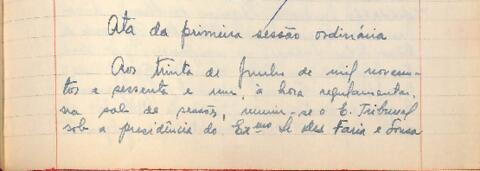 Ata da primeira sessão ordinária
Aos trinta de Junho de mil novecen-
tos e sessenta e um, à hora regulamentar,
na sala de sessão, reuniu-se o E. Tribunal
sob a presidência do Exmo Sr Des Faria e Sousa